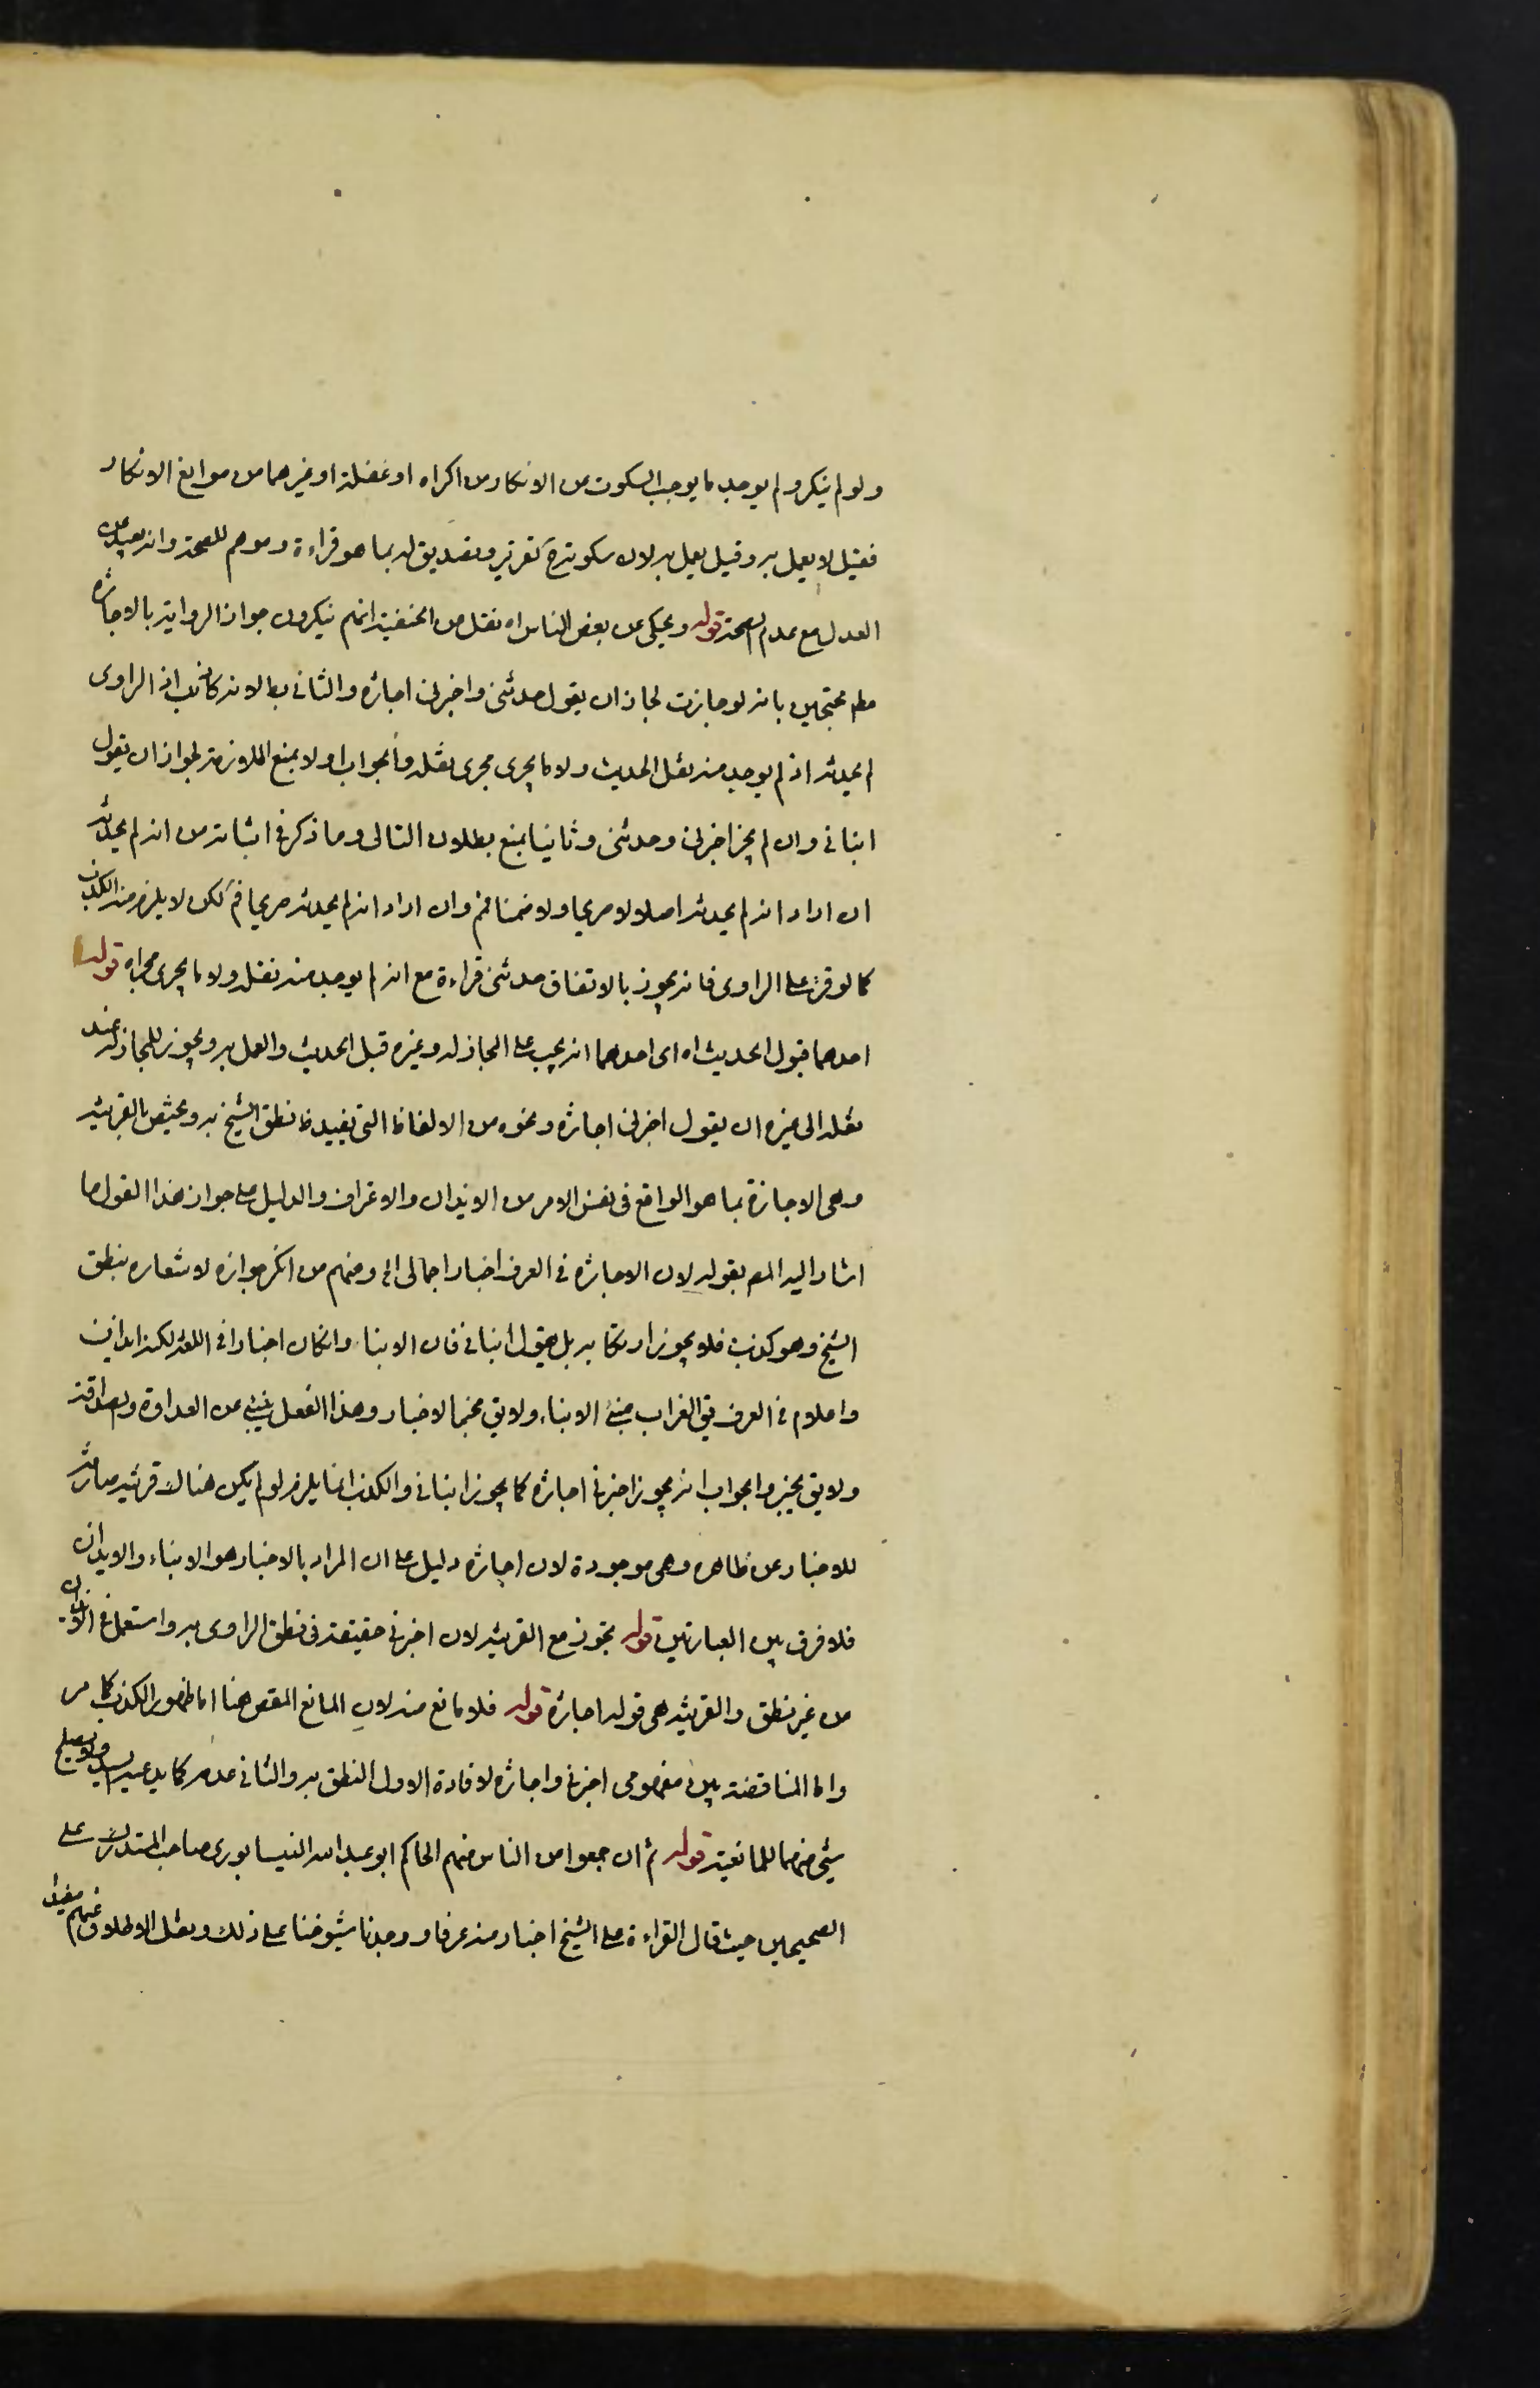 ولو لم ينكر ولم يوجد ما يوجب السكوت من الانكار من اكراه او غفلة او غيرهما من موانع الانكار
فقيل لا يعمل به وقيل يعمل به لان سكوته ح تقرير وتصديق له بما هو قراءة وموهم للصحة وانه بعيد من
العدل مع عدم الصحة قوله ويحكى عن بعض الناس اه نقل من الحنفية انهم ينكرون جواز الرواية بالاجازة
مطم محتجين بانه لو جازت لجاز ان يقول حدثنى واخبرنى اجازة والثانى بط لانه كاذب اذ الراوى
لم يحدثه اذ لم يوجد منه نقل الحديث ولا ما يجرى مجرى نقله والجواب اولا بمنع الملازمة لجواز ان يقول
انبانى وان لم يجز اخبرنى وحدثنى وثانيا بمنع بطلان التالى وما ذكر فى اثباته من انه لم يحدثه
ان اراد انه لم يحدثه اصلا لا صريحا ولا ضمنا فم وان اراد انه لم يحدثه صريحا فم لكن لا يلزم منه الكذب
كما لو قرئ على الراوى فانه يجوز بالاتفاق حدثنى قراءة مع انه لم يوجد منه نقله ولا ما يجرى مجراه قوله
احدهما قبول الحديث اه اى احدهما انه يجب على المجاز له وغيره قبل الحديث والعمل به ويجوز للمجاز له عند
نقله الى غيره ان يقول اخبرنى اجازة ونحوه من الالفاظ التى تفيد ظ نطق الشيخ به القرينة
وهى الاجازة بما هو الواقع فى نفس الامر من الايذان والاعتراف والدليل على جواز هذا القول ما
اشار اليه المص بقوله لان الاجازة فى العرف اخبار اجمالى الى ومنهم من انكر جوازه لاشعاره بنطق
الشيخ وهو كذب فلا يجوز ارتكابه بل يقول انبانى فان الانباء وان كان اخبارا فى اللغة لكنه ايذان
واعلام فى العرف يق الغراب منبئ الانباء ولا يق مخبر الاخبار وهذا الفعل ينبئ عن العداوة والصداقة
ولا يق يخبر والجواب انه يجوز اخبرنى اجازة كما يجوز انبانى والكذب انما يلزم لو لم يكن هناك قرينة صارفة
للاخبار عن ظاهره وهى موجودة لان اجازة دليل على ان المراد بالاخبار هو الانباء والايذان
فلا فرق بين العبارتين قوله تجوز مع القرينة لان اخبرنى حقيقة فى نطق الراوى به واستعمل فى الايذان
من غير نطق والقرينة هى قوله اجازة قوله فلا مانع منه لان المانع المقص هنا اما ظهور الكذب كما مر
واما المناقضة بين مفهومى اخبرنى واجازة لافادة الاول النطق به والثانى عدمه كما يدعيه السيد ولا يصلح
شئ منهما للمانعية قوله ثم ان جمعوا من الناس منهم الحاكم ابو عبد الله النيسابورى صاحب المستدرك على
الصحيحين حيث قال القراءة على الشيخ اخبار منه عرفا ووجدنا شيوخنا على ذلك ونقل الاطلاق عنهم مقيد